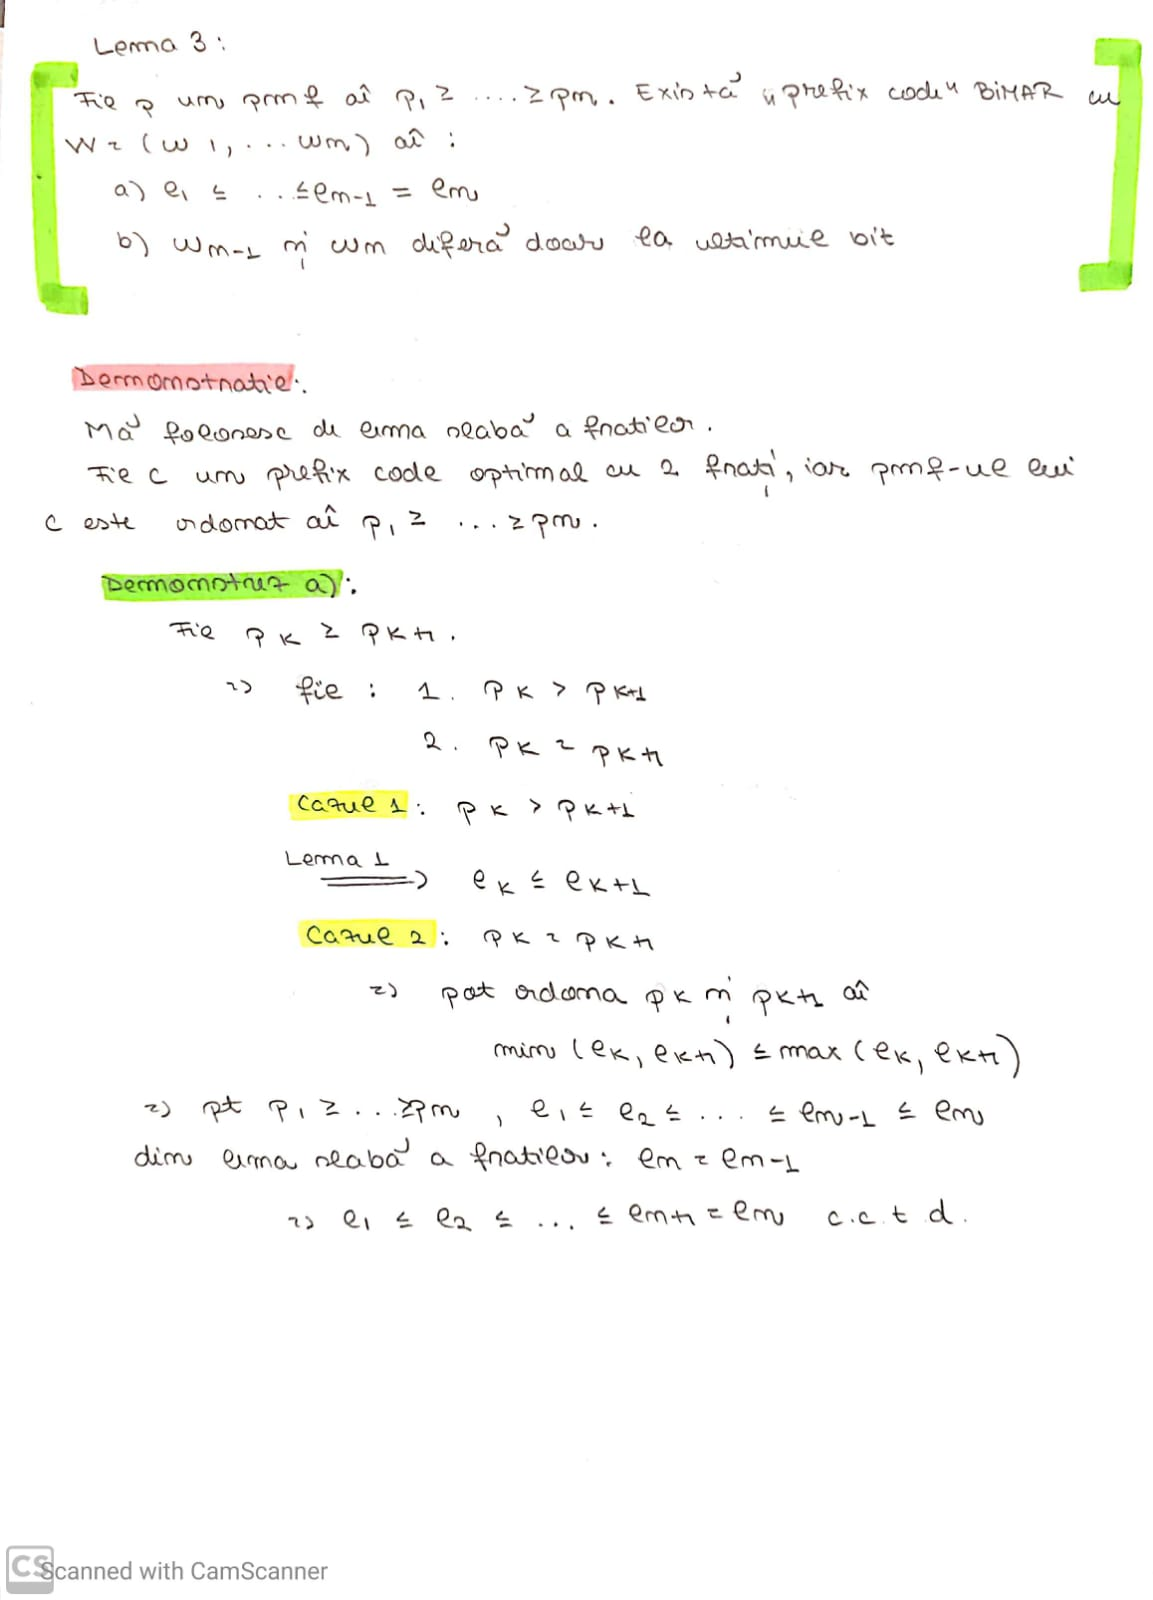 Lema 3:
Fie p un pmf aî p1 ≥ .... ≥ pm. Există "prefix code" BINAR cu
W = (w1, ... wm) aî :
a) l1 ≤ ... ≤ lm-1 = lm
b) wm-1 și wm diferă doar la ultimul bit
Demonstrație:
Mă folosesc de lema slabă a fraților.
Fie C un prefix code optimal cu 2 frați, iar pmf-ul lui
C este ordonat aî p1 ≥ ... ≥ pm.
Demonstrez a):
Fie pk ≥ pk+1.
=> fie : 1. pk > pk+1
2. pk = pk+1
Cazul 1: pk > pk+1
Lema 1
=> lk ≤ lk+1
Cazul 2: pk = pk+1
=> pot ordona pk și pk+1 aî
min (lk, lk+1) ≤ max (lk, lk+1)
=> pt p1 ≥ ... ≥ pm , l1 ≤ l2 ≤ ... ≤ lm-1 ≤ lm
din lema slabă a fraților: lm = lm-1
=> l1 ≤ l2 ≤ ... ≤ lm-1 = lm c.c.t.d.
CS Scanned with CamScanner